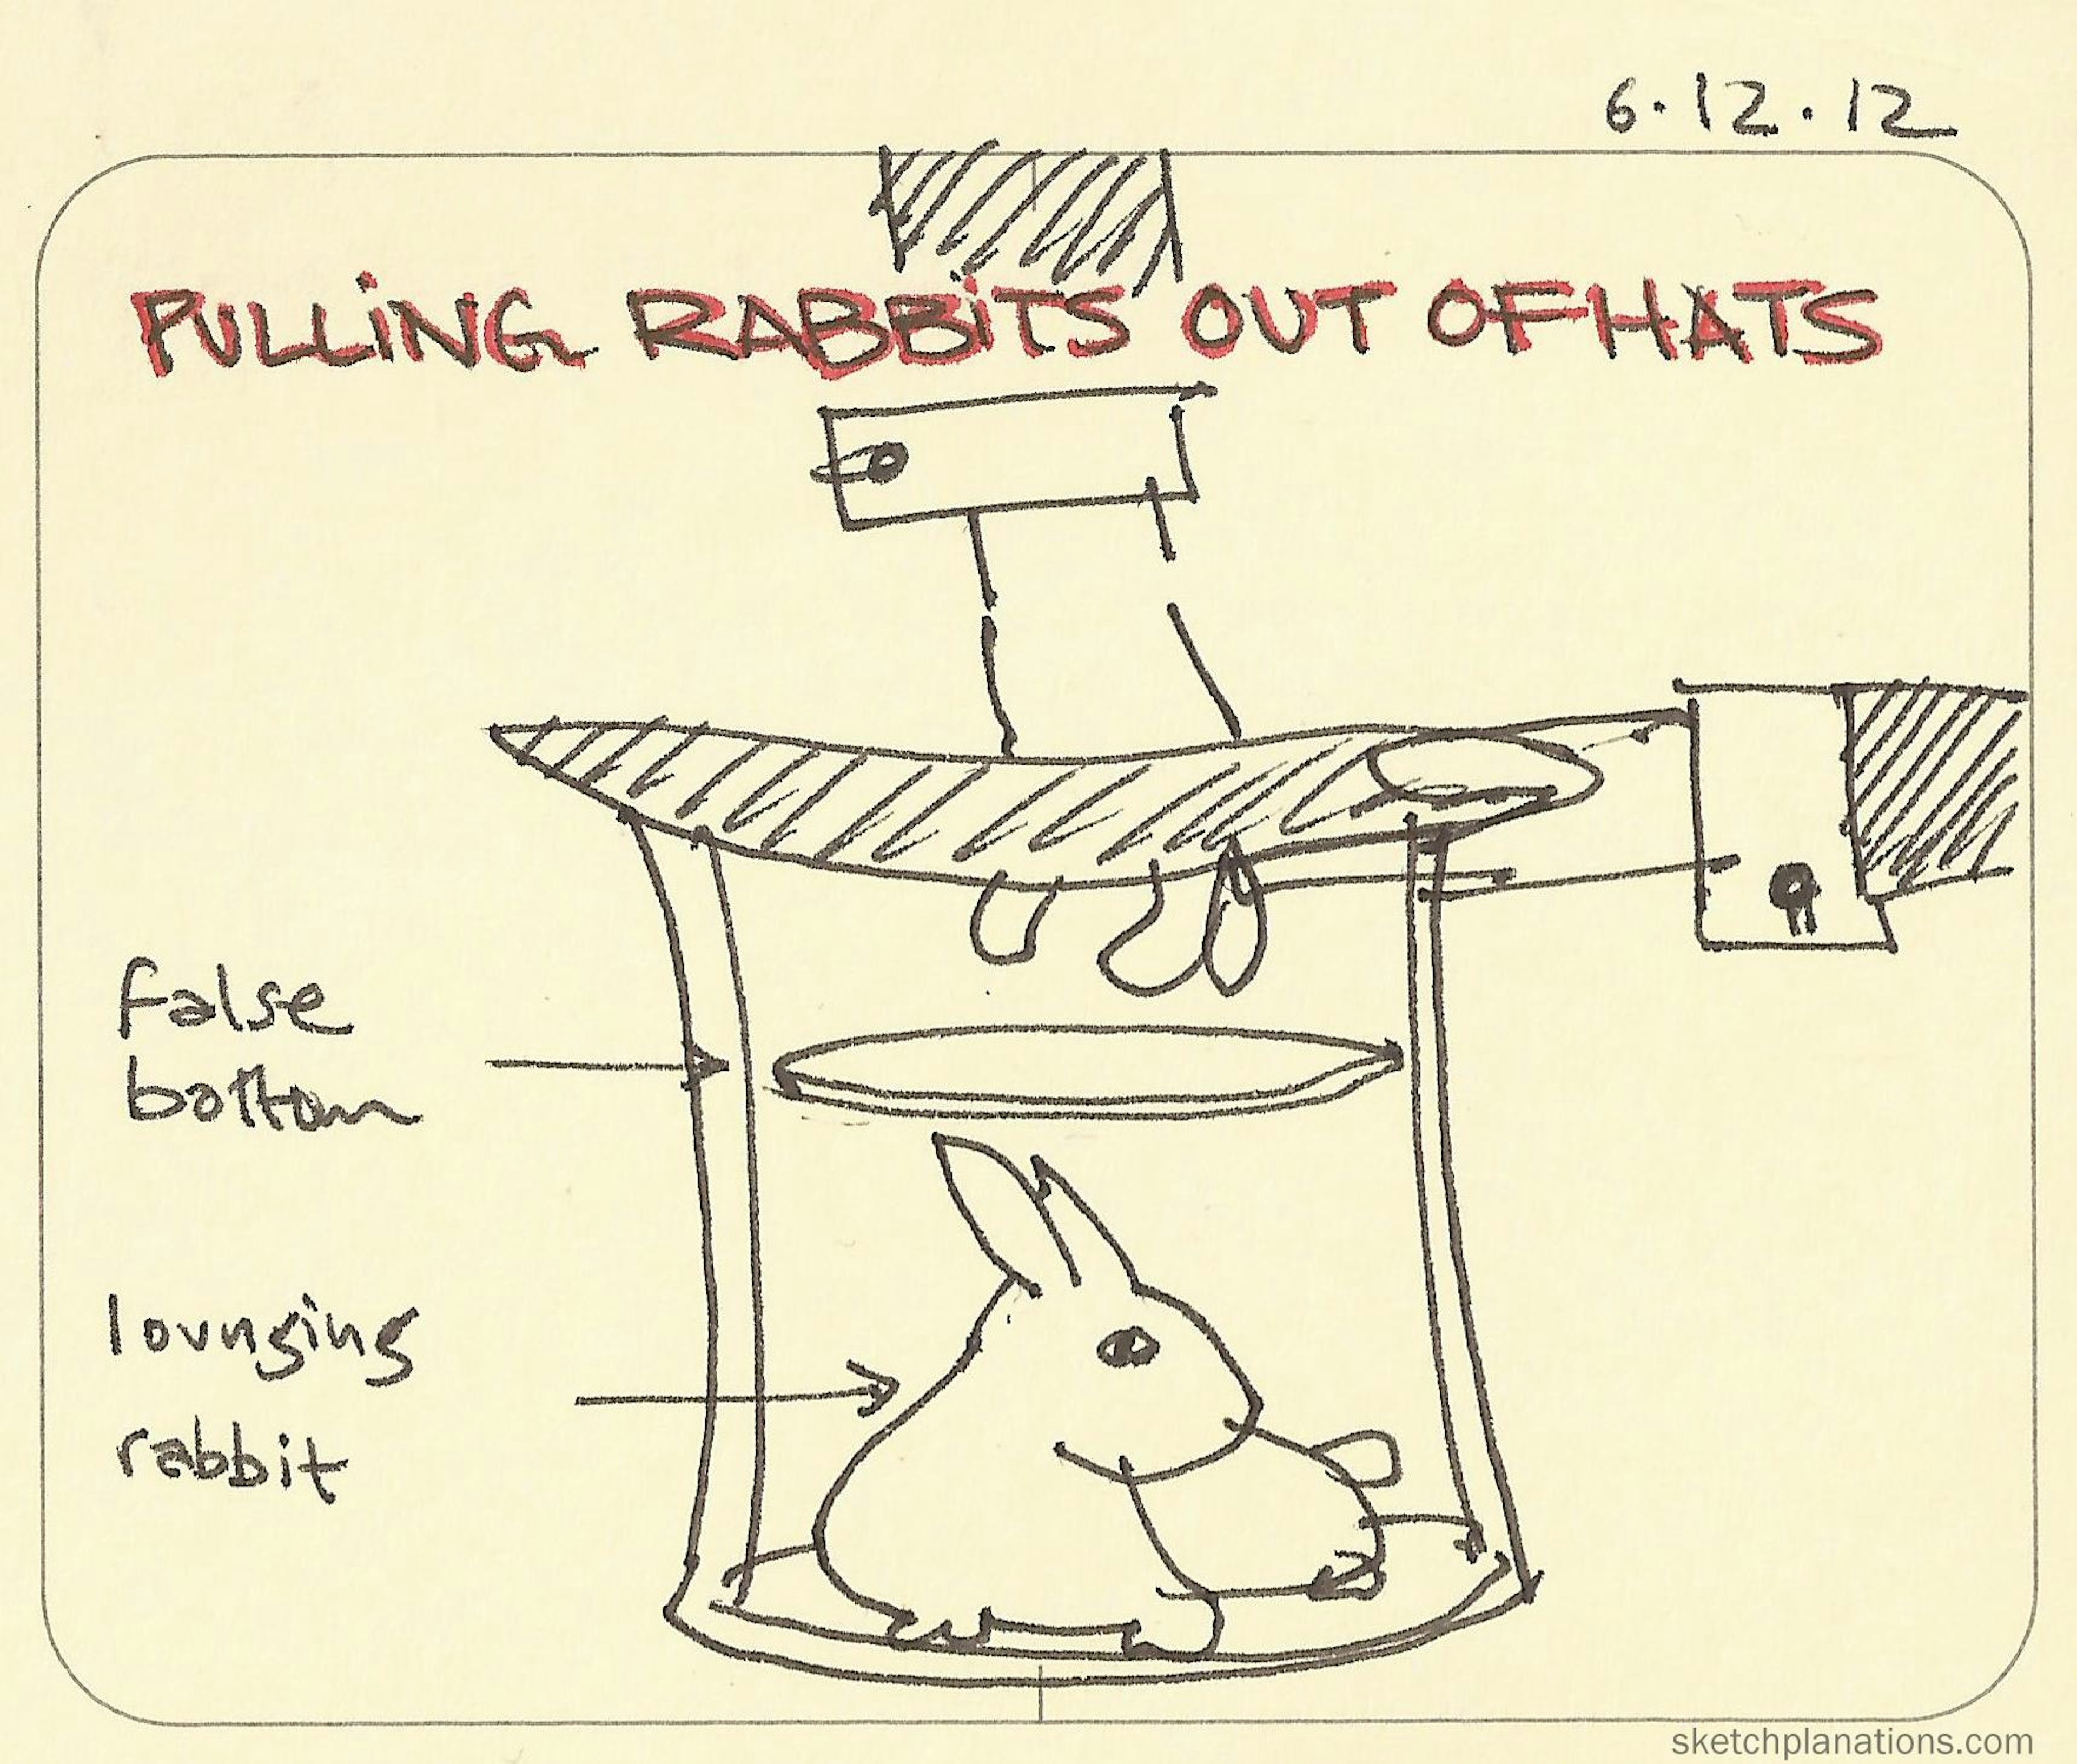 6.12.12
PULLiNG RABBiTS OUT OF HATS
false
bottom
lounging
rabbit
sketchplanations.com